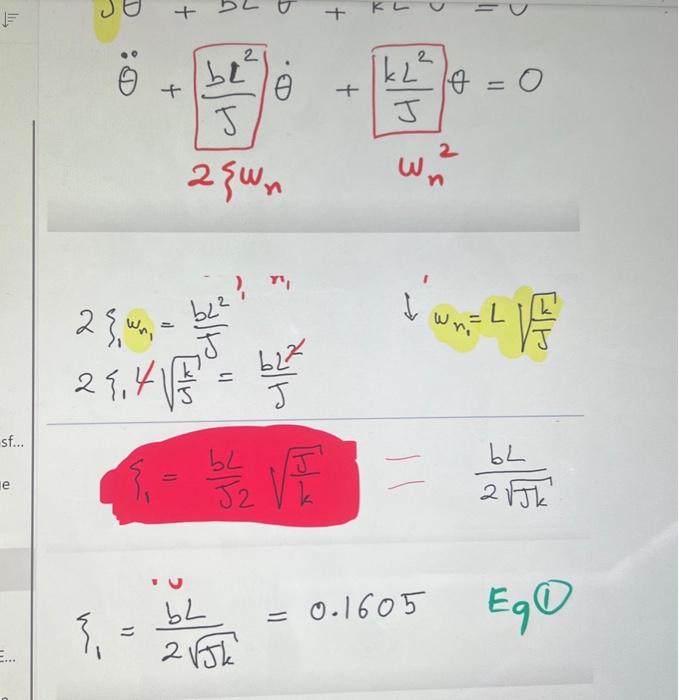 Jθ̈ + bL² θ̇ + kL² θ = 0
θ̈ + bL²/J θ̇ + kL²/J θ = 0
2ξωn ωn²
2ξ₁ωn₁ = bL²/J ↓ ωn₁ = L√(k/J)
2ξ₁L√(k/J) = bL²/J
ξ₁ = bL/J2 √(J/k) = bL/2√Jk
ξ₁ = bL/2√Jk = 0.1605 Eq①
sf...
e
E...